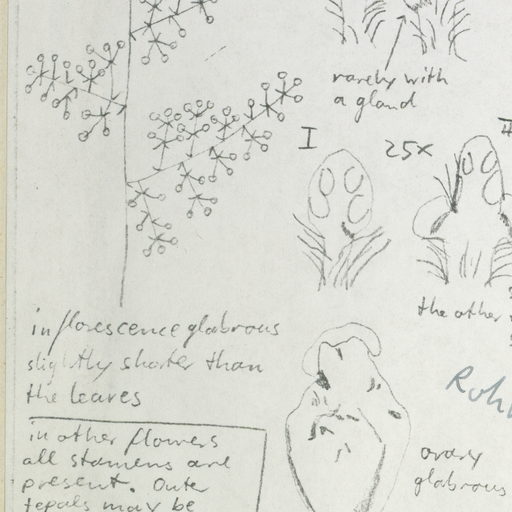 rarely with
a gland
I
25x
II
the other
inflorescence glabrous
slightly shorter than
the leaves
Rohw
ovary
glabrous
in other flowers
all stamens are
present. Outer
tepals may be